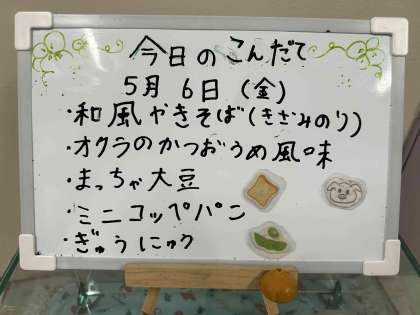 今日のこんだて
5月 6日 (金)
・和風やきそば(きざみのり)
・オクラのかつおうめ風味
・まっちゃ大豆
・ミニコッペパン
・ぎゅうにゅう